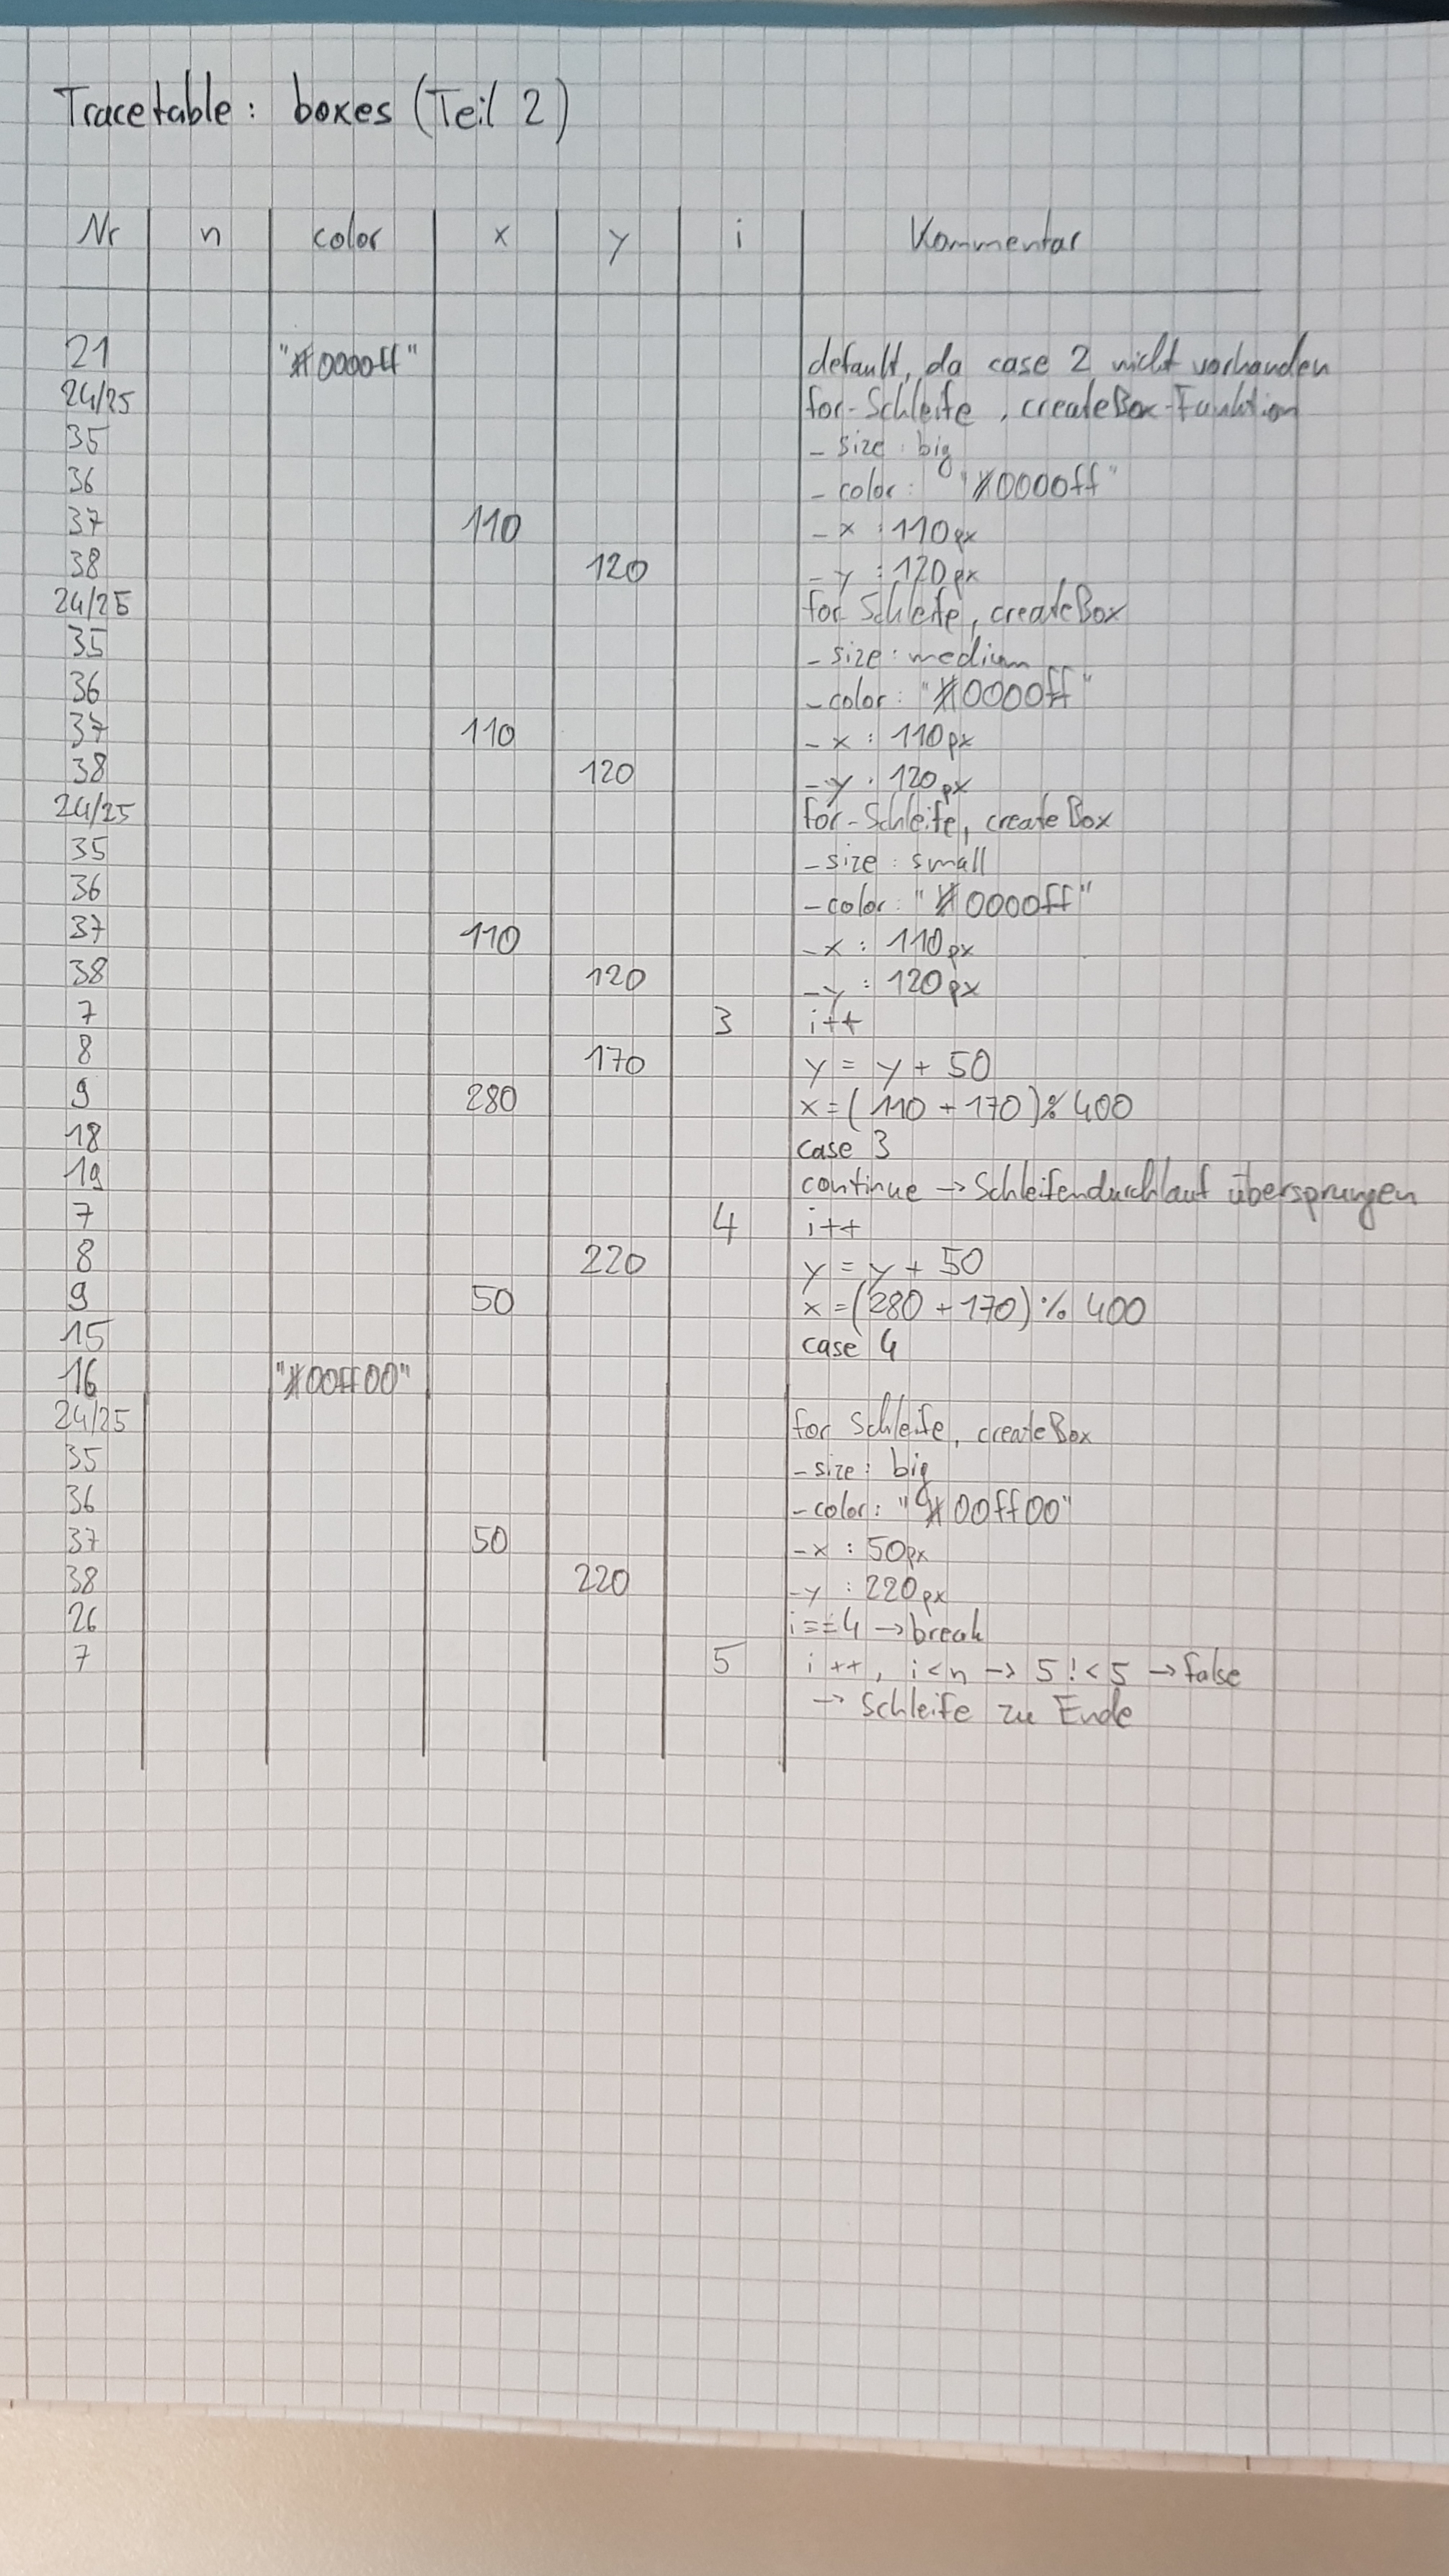 Tracetable: boxes (Teil 2)
Nr n color x y i Kommentar
21 "#0000ff" default, da case 2 nicht vorhanden
24/25 for-Schleife, createBox-Funktion
35 - size: big
36 - color: "#0000ff"
37 110 - x : 110px
38 120 - y : 120px
24/25 for Schleife, createBox
35 - size: medium
36 - color: "#0000ff"
37 110 - x : 110px
38 120 - y : 120px
24/25 for-Schleife, createBox
35 - size: small
36 - color: "#0000ff"
37 110 - x : 110px
38 120 - y : 120px
7 3 i++
8 170 y = y + 50
9 280 x = (110 + 170) % 400
18 case 3
19 continue → Schleifendurchlauf übersprungen
7 4 i++
8 220 y = y + 50
9 50 x = (280 + 170) % 400
15 case 4
16 "#00ff00"
24/25 for Schleife, createBox
35 - size: big
36 - color: "#00ff00"
37 50 - x : 50px
38 220 - y : 220px
26 i == 4 → break
7 5 i++, i<n → 5 !< 5 → false
→ Schleife zu Ende